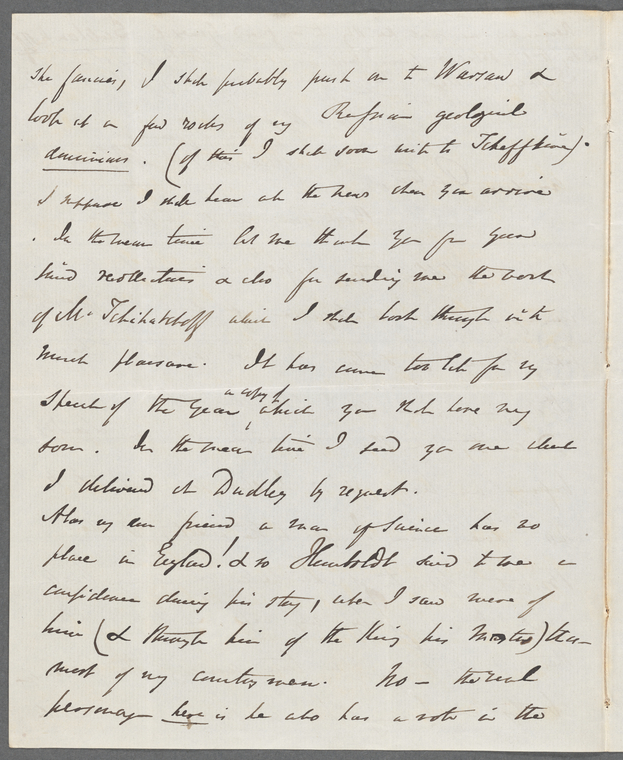 the fancies, I shall probably push on to Warsaw &
look at a few rocks of my Russian geological
dominions. (of this I shall soon write to Tcheffkine).
I suppose I shall hear all the news when you arrive
. In the mean time let me thank you for your
kind recollections & also for sending me the work
of Mr Tchihatcheff which I shall look through with
much pleasure. It has come too late for my
Speech of the Year, a copy of which you shall have very
soon. In the mean time I send you one which
I delivered at Dudley by request.
Alas my dear friend a man of Science has no
place in England! & so Humboldt said to me in
confidence during his stay, when I saw more of
him (& through him of the King his Master) than
most of my countrymen. No – the real
personage here is he who has a vote in the